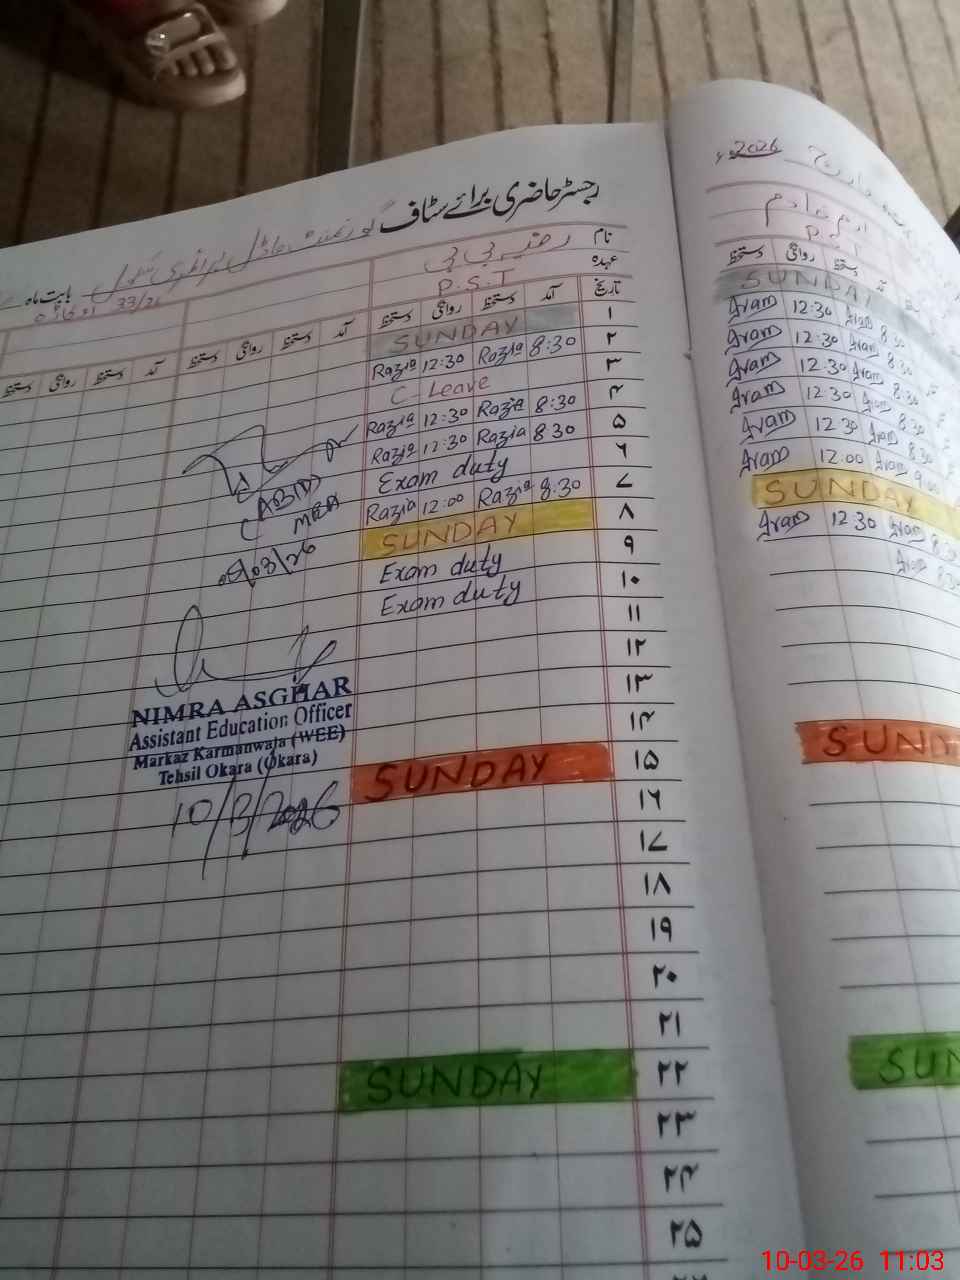 رجسٹر حاضری برائے سٹاف
گورنمنٹ ماڈل پرائمری سکول
33/2L اوکاڑہ
بابت ماہ
نام
رضیہ بی بی
عہدہ
P.S.T
تاریخ آمد دستخط روانگی دستخط آمد دستخط روانگی دستخط آمد دستخط روانگی دستخط
۱ SUNDAY
۲ 8:30 Razia 12:30 Razia
۳ C-Leave
۴ 8:30 Razia 12:30 Razia
۵ 8:30 Razia 12:30 Razia
۶ Exam duty
۷ 8:30 Razia 12:00 Razia
۸ SUNDAY
۹ Exam duty
۱۰ Exam duty
۱۱
۱۲
۱۳
۱۴
۱۵ SUNDAY
۱۶
۱۷
۱۸
۱۹
۲۰
۲۱
۲۲ SUNDAY
۲۳
۲۴
۲۵
MEA
09/03/26
NIMRA ASGHAR
Assistant Education Officer
Markaz Karmanwala (WEE)
Tehsil Okara (Okara)
10/3/2026
مارچ 2026ء
ارم
P.S.T
دستخط روانگی دستخط
SUNDAY
8:30 Iram 12:30 Iram
8:30 Iram 12:30 Iram
8:30 Iram 12:30 Iram
8:30 Iram 12:30 Iram
8:30 Iram 12:30 Iram
9:00 Iram 12:00 Iram
SUNDAY
8:30 Iram 12:30 Iram
8:30 Iram
SUNDAY
SUN
10-03-26 11:03